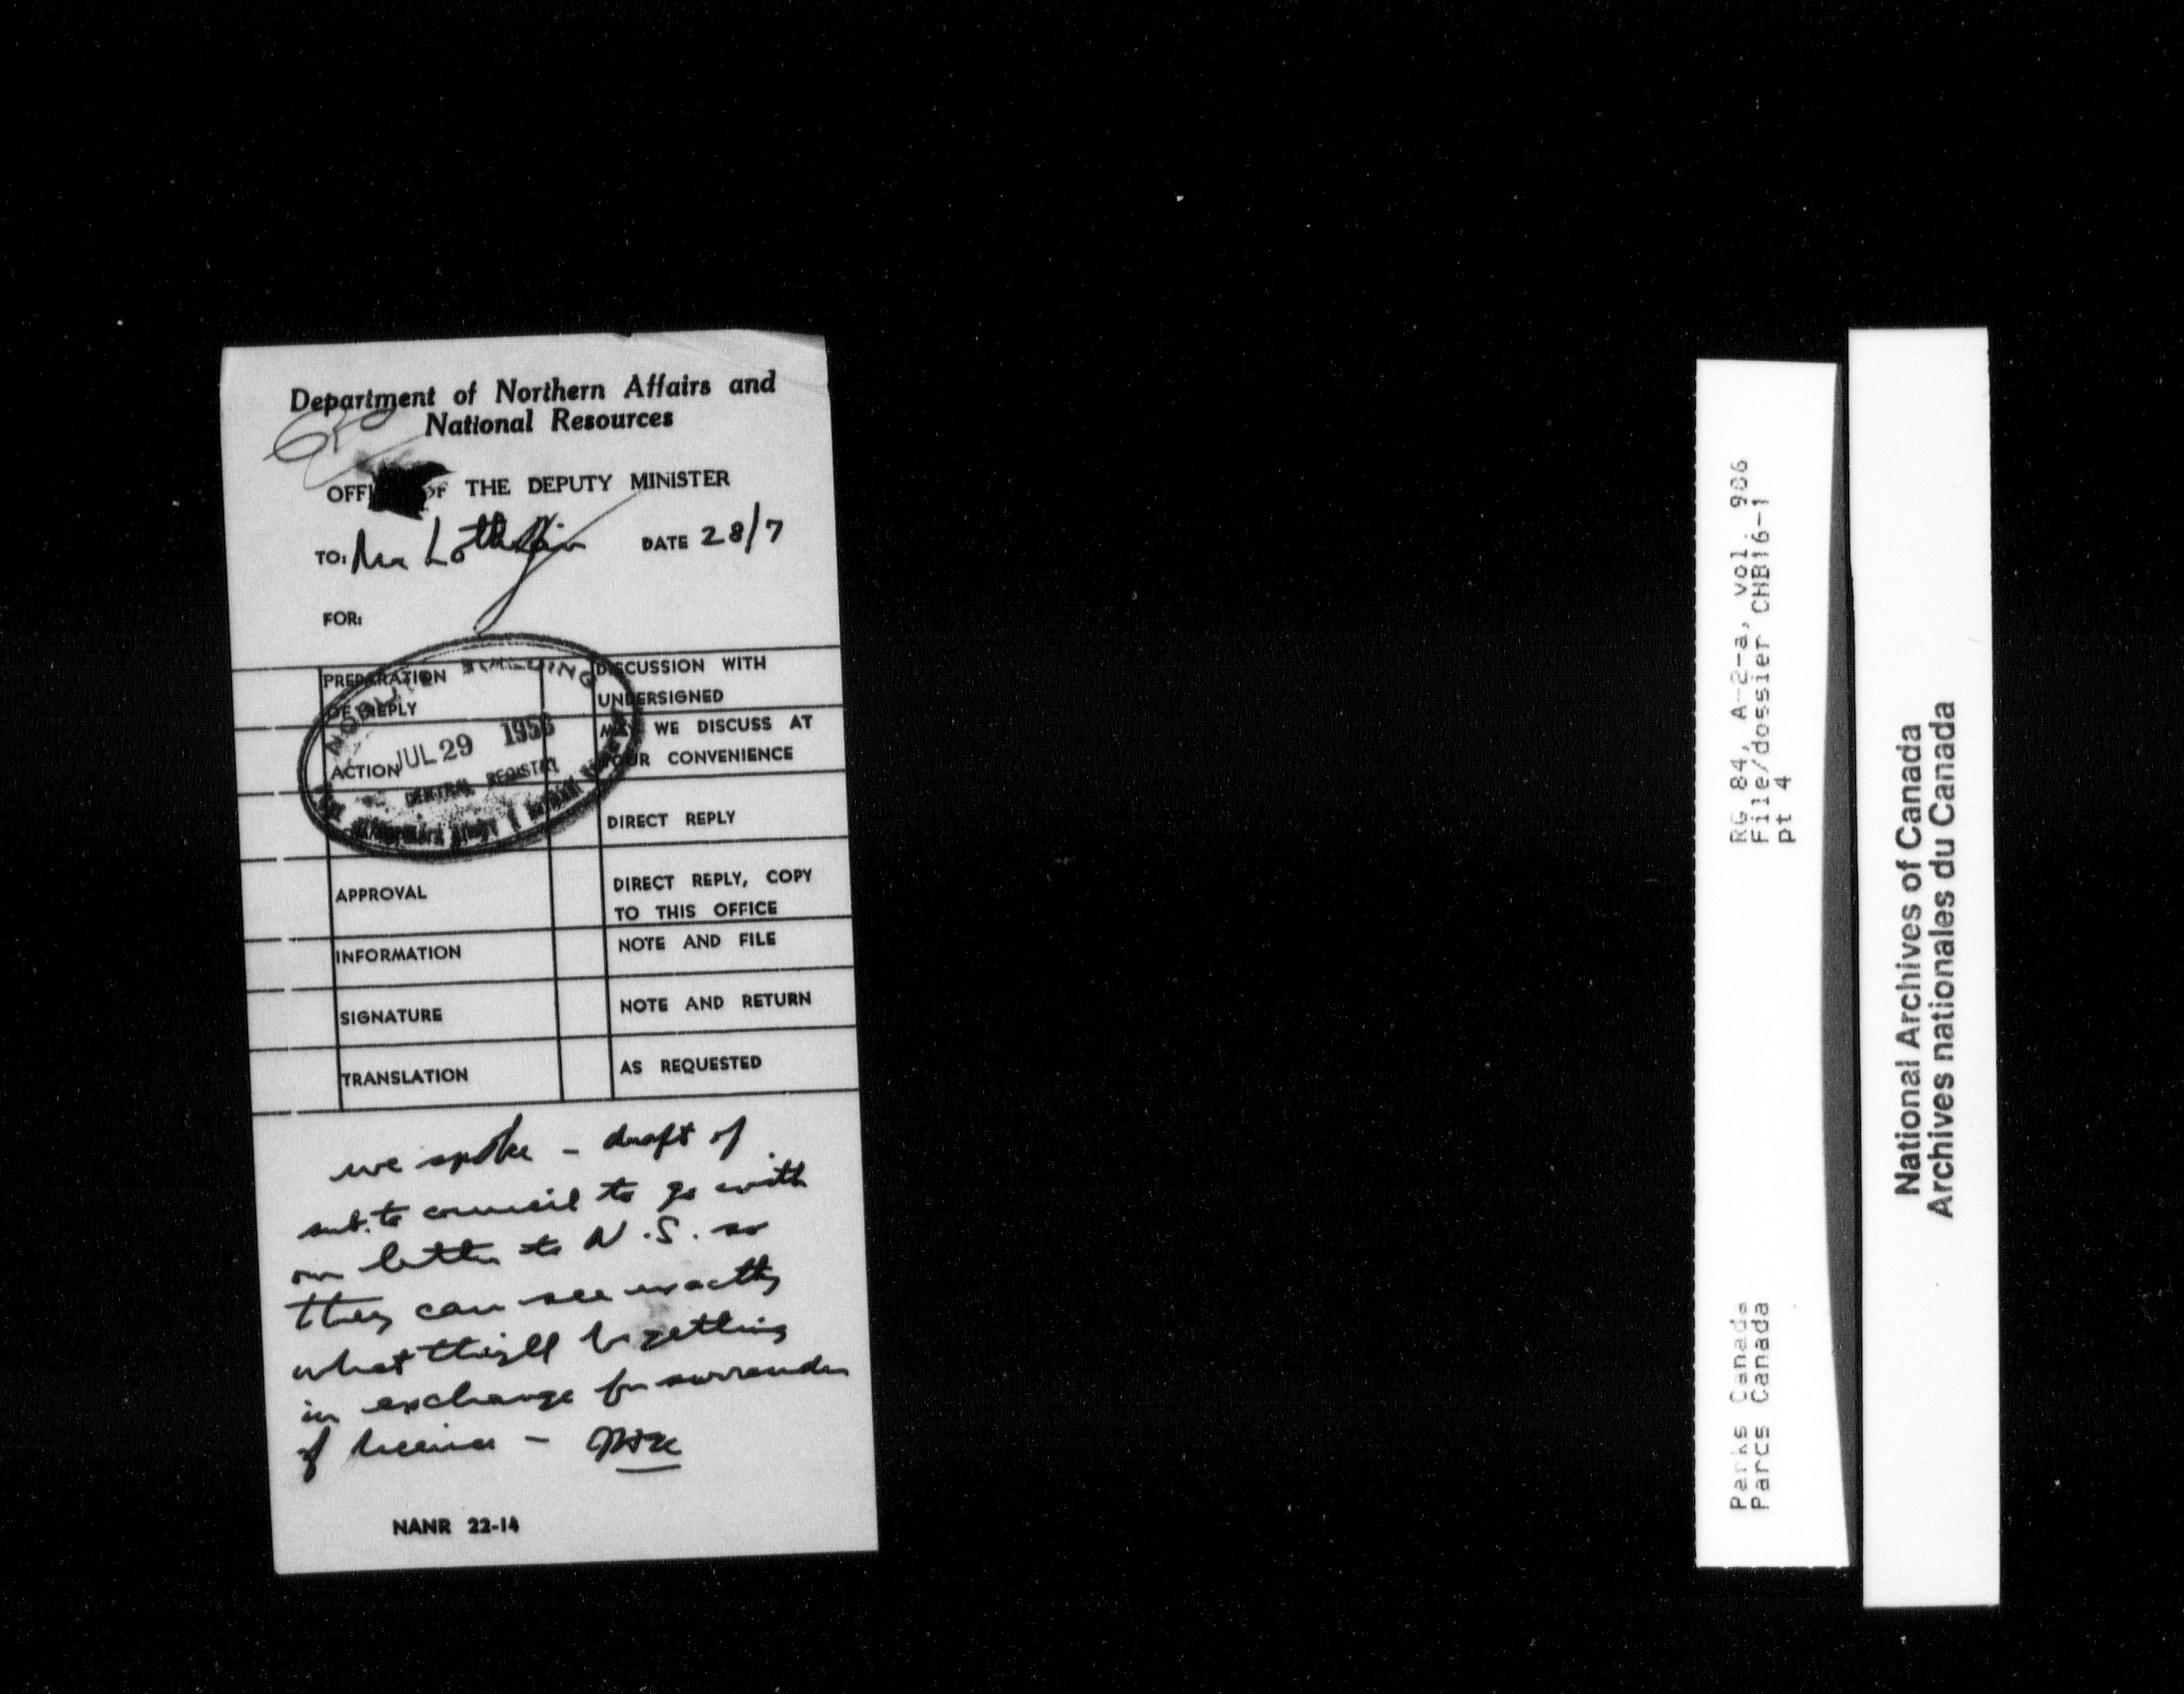 Department of Northern Affairs and
National Resources
OFF OF THE DEPUTY MINISTER
TO: Mr Lothian DATE 28/7
FOR:
PREPARATION
OF REPLY
DISCUSSION WITH
UNDERSIGNED
ACTION
MAY WE DISCUSS AT
YOUR CONVENIENCE
NORLITE BUILDING
JUL 29 1958
CENTRAL REGISTRY
DIRECT REPLY
APPROVAL
DIRECT REPLY, COPY
TO THIS OFFICE
INFORMATION
NOTE AND FILE
SIGNATURE
NOTE AND RETURN
TRANSLATION
AS REQUESTED
we spoke – draft of
sub. to council to go with
our letter to N.S. so
they can see exactly
what they'll be getting
in exchange for surrender
of licence –
NANR 22-14
RG 84, A-2-a, vol. 986
File/dossier CHB16-1
pt 4
Parks Canada
Parcs Canada
National Archives of Canada
Archives nationales du Canada